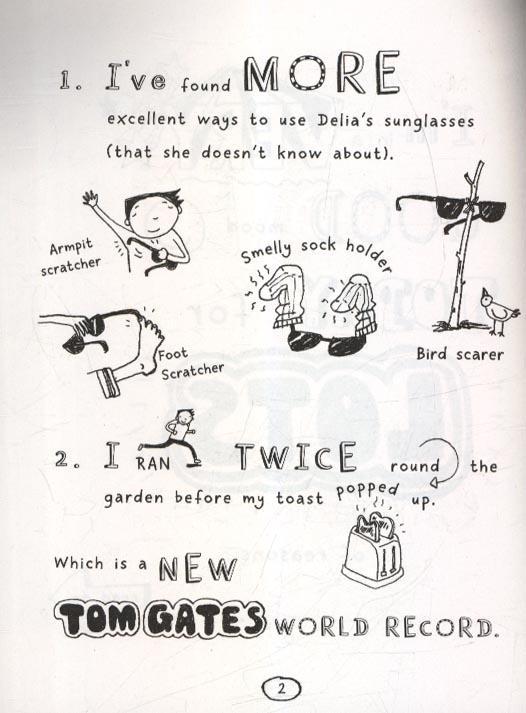 1. I've found MORE
excellent ways to use Delia's sunglasses
(that she doesn't know about).
Armpit
scratcher
Smelly sock holder
Foot
Scratcher
Bird scarer
2. I RAN TWICE round the
garden before my toast popped up.
Which is a NEW
TOM GATES WORLD RECORD.
2